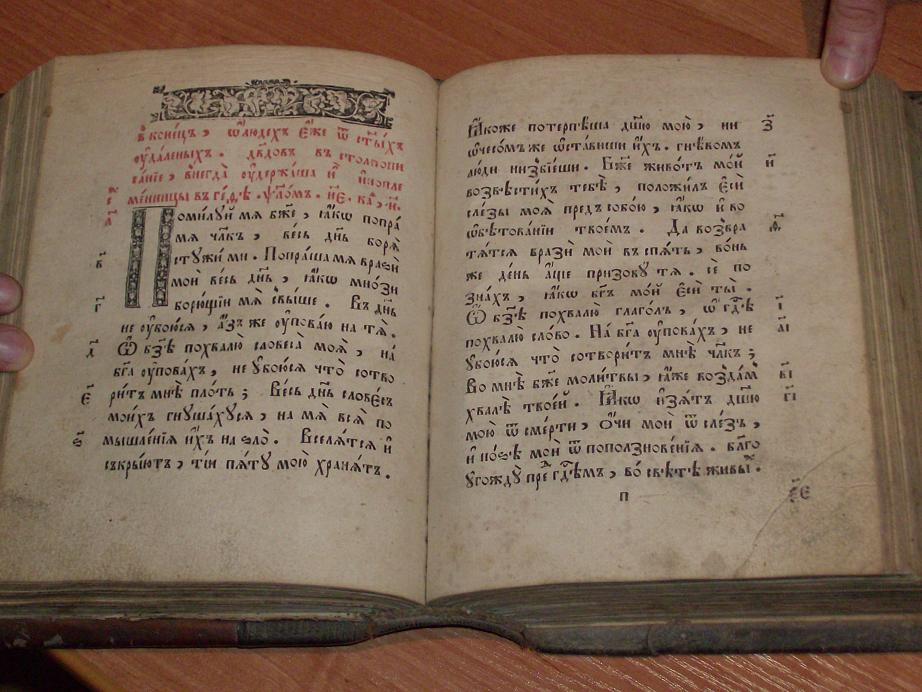 В конецъ, ѡ҆ людехъ є҆́же ѿ ст҃ы́хъ
ᲂу҆дале́ныхъ. дв҃довъ въ столпопи
са́нїе, внегда̀ ᲂу҆держа́ша и҆̀ и҆нопле
ме́нницы въ ге́ѳѣ. ѱало́мъ. н҃є.
Поми́луй мѧ бж҃е, ꙗ҆́кѡ попра̀
мѧ чл҃къ, весь дн҃ь борѧ̀
стужи́ ми. Попра́ша мѧ вразѝ
моѝ весь дн҃ь, ꙗ҆́кѡ мно́зи
борю́щїи мѧ свы́ше. Въ дн҃ь
не ᲂу҆бою́сѧ, а҆́зъ же ᲂу҆пова́ю на тѧ̀.
Ѡ҆ бз҃ѣ похвалю̀ словеса̀ моѧ̀, на́
бг҃а ᲂу҆пова́хъ, не ᲂу҆бою́сѧ что̀ сотво
ри́тъ мнѣ̀ пло́ть; Ве́сь дн҃ь слове́съ
мои́хъ гнуша́хусѧ, на мѧ̀ всѧ̀ по
мышле́нїѧ и҆́хъ на ѕло̀. Вселѧ́тсѧ и҆
съкры́ютъ, ті́и пѧ́ту мою̀ хранѧ́тъ.
в҃
г҃
д҃
є҃
ѕ҃
Ꙗ҆́коже потерпѣ́ша дш҃ю мою̀, ни
ѡ҆ чесо́мъ же ѿста́виши и҆́хъ. гнѣ́вомъ
лю́ди низве́еши. Бж҃е живо́тъ мо́й
возвѣсти́хъ тебѣ̀, положи́лъ є҆сѝ
сле́зы моѧ̀ предъ собо́ю, ꙗ҆́кѡ и҆ во
ѡ҆бѣтова́нїи твое́мъ. Да возвра
тѧ́тсѧ вразѝ моѝ въ спѧ́ть, во́нь
же де́нь а҆́ще призову́ тѧ. сѐ по
зна́хъ, ꙗ҆́кѡ бг҃ъ мо́й є҆сѝ ты̀.
Ѡ҆ бз҃ѣ похвалю̀ глаго́лъ, ѡ҆ гдⷭ҇ѣ
похвалю̀ сло́во. На бг҃а ᲂу҆пова́хъ, не
ᲂу҆бою́сѧ что̀ сотвори́тъ мнѣ̀ чл҃къ;
Во мнѣ̀ бж҃е моли́твы, ꙗ҆́же возда́мъ
хвалѣ̀ твое́й. Ꙗ҆́кѡ и҆зѧ́тъ дш҃ю
мою̀ ѿ сме́рти, ѻ҆́чи моѝ ѿ сле́зъ,
и҆ но́ѕѣ моѝ ѿ поползнове́нїѧ. Бл҃го
ᲂу҆гождꙋ̀ пред̾ гдⷭ҇емъ, во́ свѣтѣ живы́хъ.
з҃
и҃
ѳ҃
і҃
а҃і
в҃і
г҃і
п